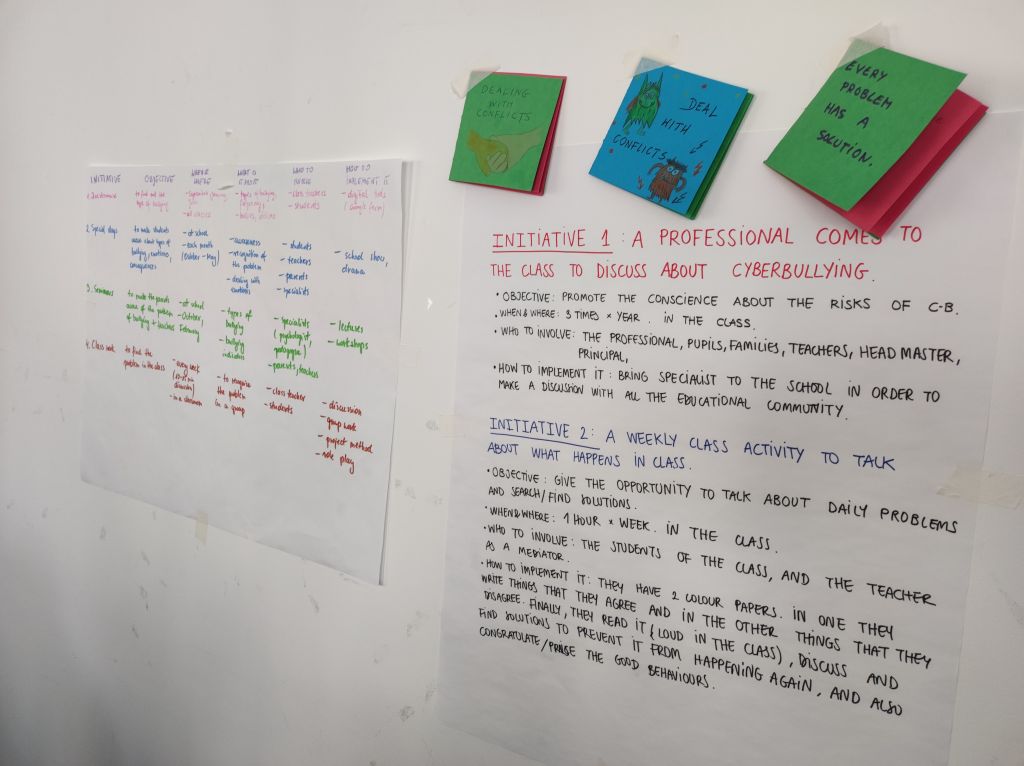 DEALING
WITH
CONFLICTS
DEAL
WITH
CONFLICTS
EVERY
PROBLEM
HAS A
SOLUTION.
INITIATIVE
OBJECTIVE
WHEN &
WHERE
WHO TO
INVOLVE
HOW TO
IMPLEMENT IT
to find out the
type of bullying
- all classes
- class teachers
- students
- digital tools
(Google Form)
2. Special days
to make students
aware about types of
bullying, emotions,
consequences
- at school
- each month
(October - May)
- awareness
- recognition of
the problem
- dealing with
emotions
- students
- teachers
- parents
- specialists
- school show,
drama
3. Seminars
to make the parents
aware of the problem
of bullying + teachers
- at school
- October,
February
- types of
bullying
- bullying
indicators
- specialists
(psychologist,
pedagogue)
- parents, teachers
- lectures
- workshops
4. Class work
to find the
problem in the class
- every week
- in a classroom
- to recognise
the problem
in a group
- class teacher
- students
- discussion
- group work
- project method
- role play
INITIATIVE 1: A PROFESSIONAL COMES TO
THE CLASS TO DISCUSS ABOUT CYBERBULLYING.
• OBJECTIVE: PROMOTE THE CONSCIENCE ABOUT THE RISKS OF C-B.
• WHEN & WHERE: 3 TIMES × YEAR. IN THE CLASS.
• WHO TO INVOLVE: THE PROFESSIONAL, PUPILS, FAMILIES, TEACHERS, HEAD MASTER,
PRINCIPAL,
• HOW TO IMPLEMENT IT: BRING SPECIALIST TO THE SCHOOL IN ORDER TO
MAKE A DISCUSSION WITH ALL THE EDUCATIONAL COMMUNITY.
INITIATIVE 2: A WEEKLY CLASS ACTIVITY TO TALK
ABOUT WHAT HAPPENS IN CLASS.
• OBJECTIVE: GIVE THE OPPORTUNITY TO TALK ABOUT DAILY PROBLEMS
AND SEARCH/FIND SOLUTIONS.
• WHEN & WHERE: 1 HOUR × WEEK. IN THE CLASS.
• WHO TO INVOLVE: THE STUDENTS OF THE CLASS, AND THE TEACHER
AS A MEDIATOR.
• HOW TO IMPLEMENT IT: THEY HAVE 2 COLOUR PAPERS. IN ONE THEY
WRITE THINGS THAT THEY AGREE AND IN THE OTHER THINGS THAT THEY
DISAGREE. FINALLY, THEY READ IT (LOUD IN THE CLASS), DISCUSS AND
FIND SOLUTIONS TO PREVENT IT FROM HAPPENING AGAIN, AND ALSO
CONGRATULATE/PRAISE THE GOOD BEHAVIOURS.